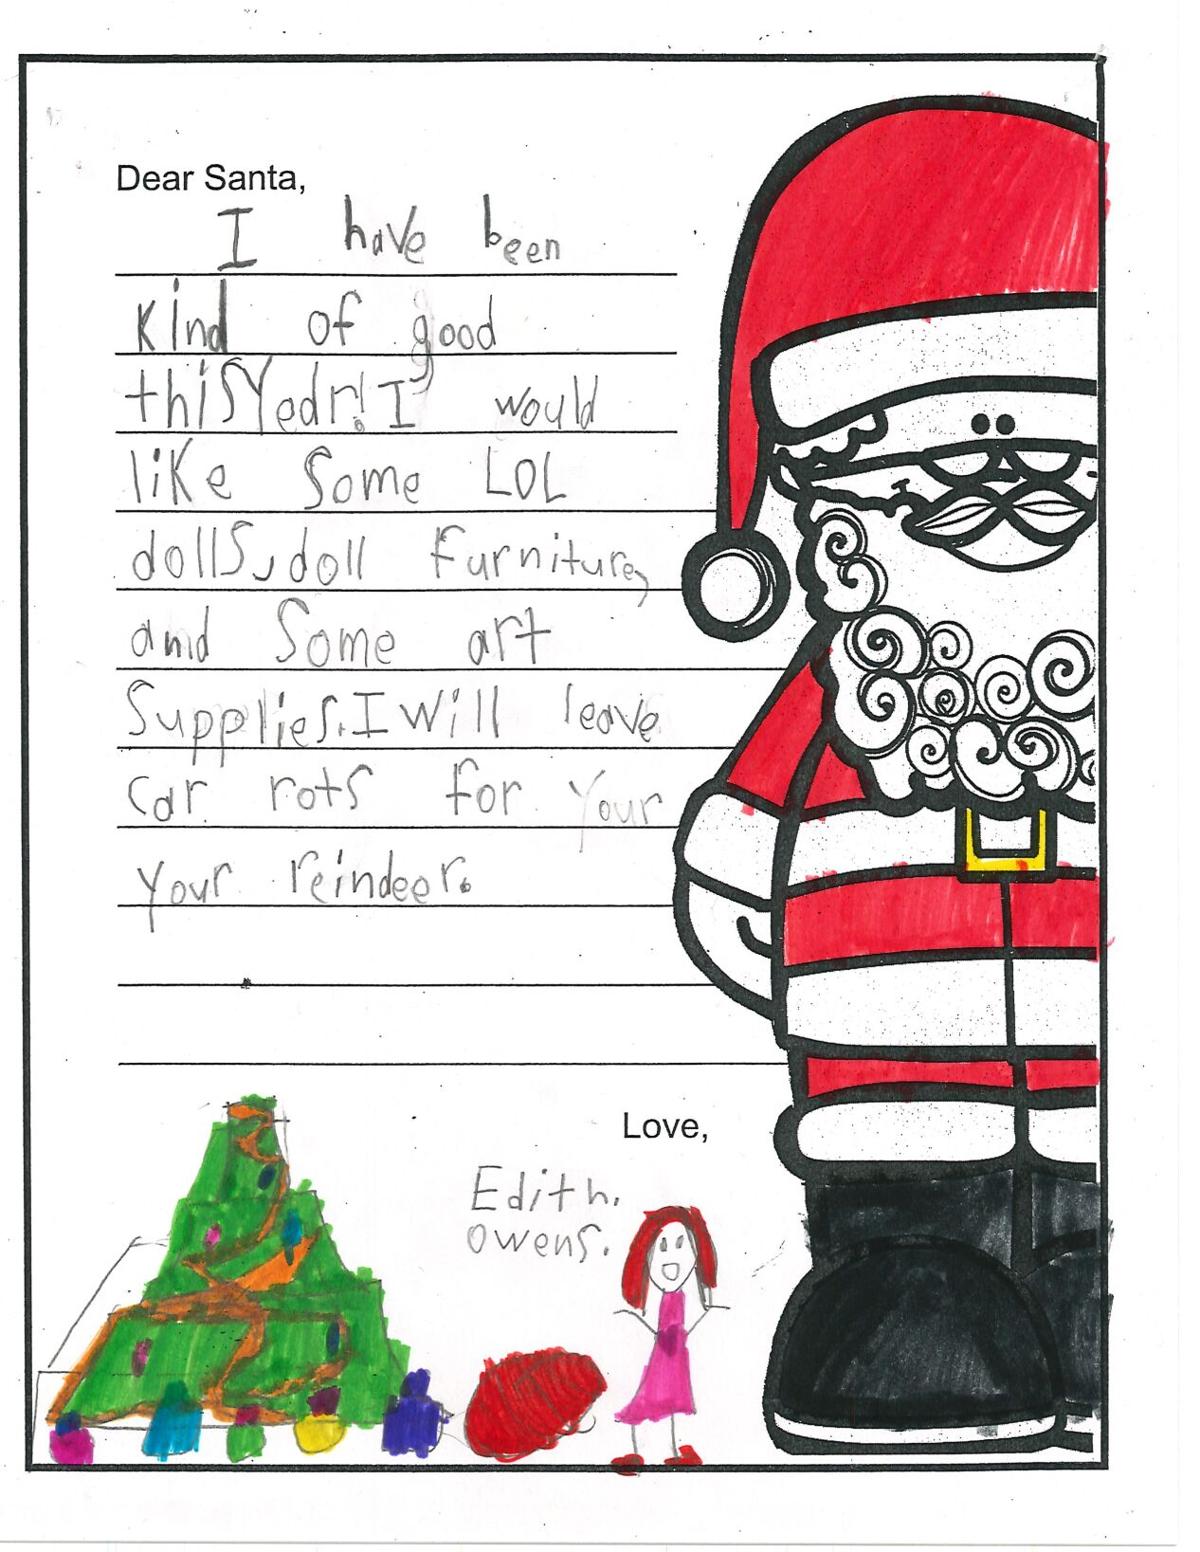 Dear Santa,
I have been
kind of good
this Year! I would
like some LOL
dolls, doll furniture,
and some art
supplies. I will leave
car rots for Your
your reindeer.
Love,
Edith.
Owens.